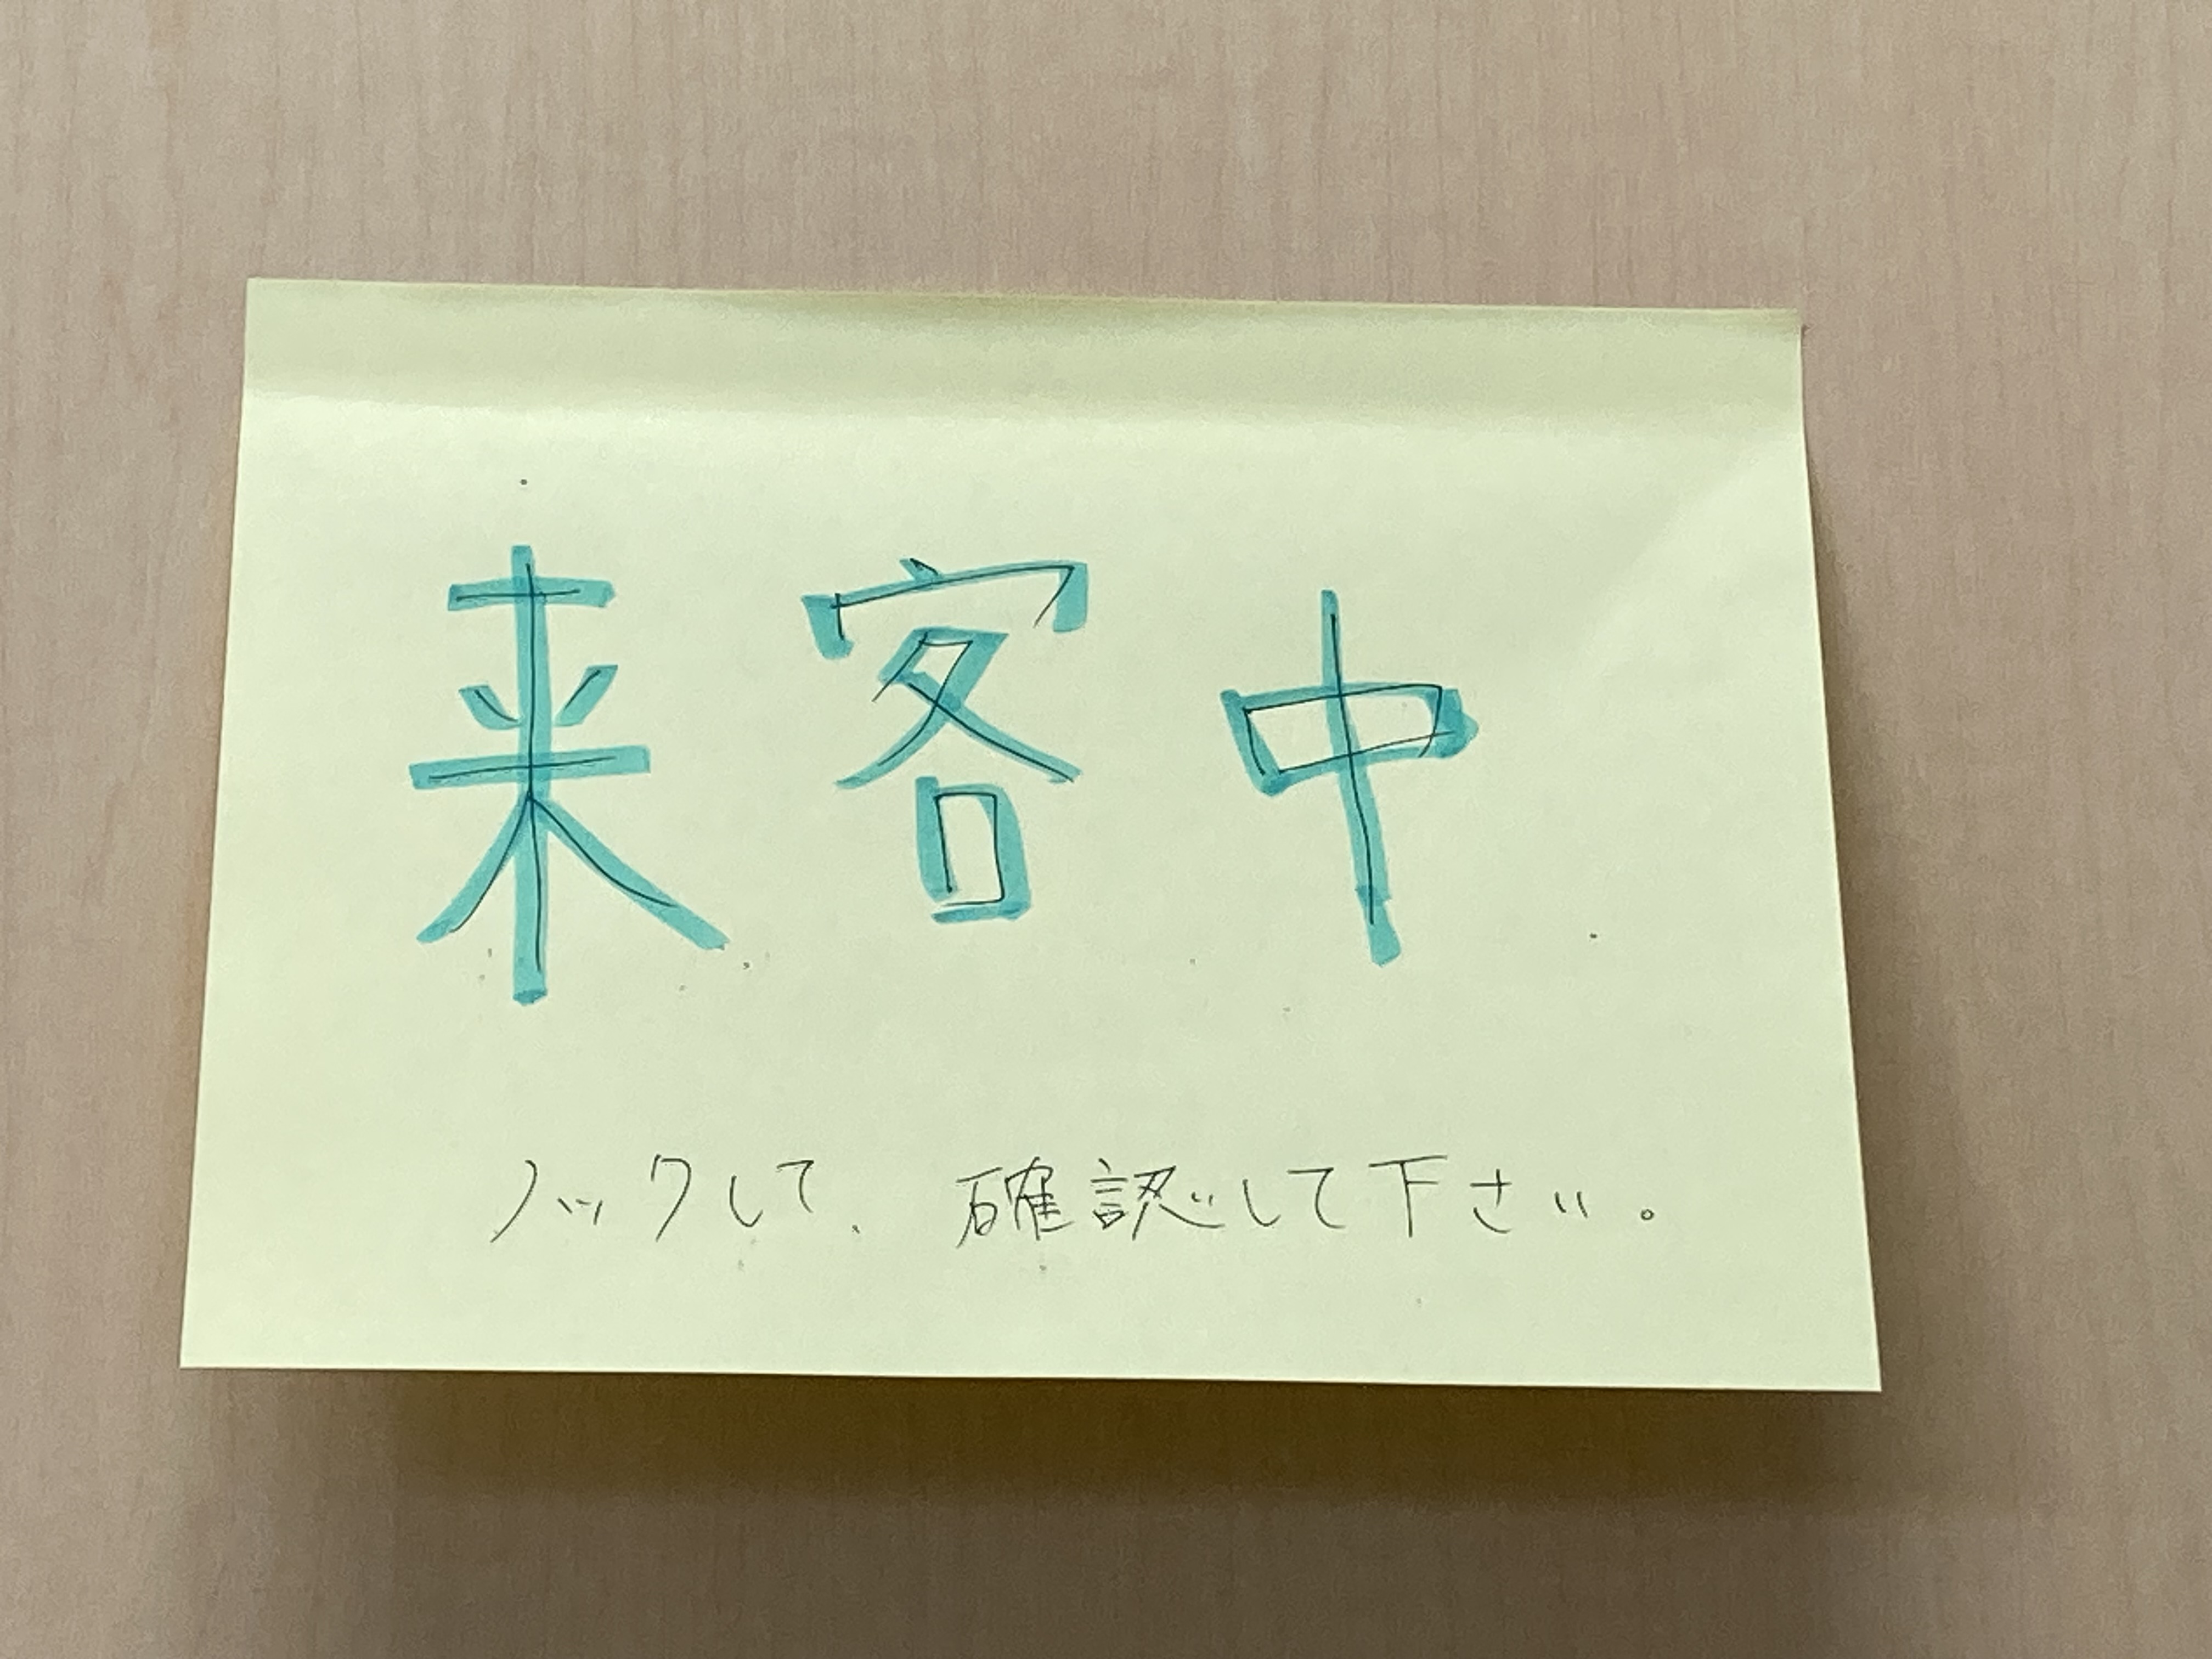 来客中
ノックして、確認して下さい。